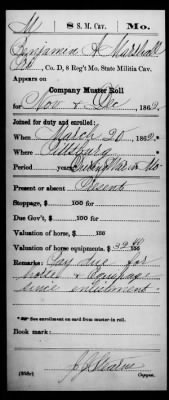 M | 8 S. M. Cav. | Mo.
Benjamin A Marshall
Pvt, Co. D, 8 Reg't Mo. State Militia Cav.
Appears on
Company Muster Roll
for Nov & Dec, 1862.
Joined for duty and enrolled:
When March 20, 1862.*
Where Pittsburg
Period During War in Mo
Present or absent Present
Stoppage, $ 100 for
Due Gov't, $ 100 for
Valuation of horse, $ 100
Valuation of horse equipments, $ 100
Remarks: Pay due for
horse & Equipage
since enlistment.
* See enrollment on card from muster-in roll.
Book mark:
J. J. Stearns
Copyist.